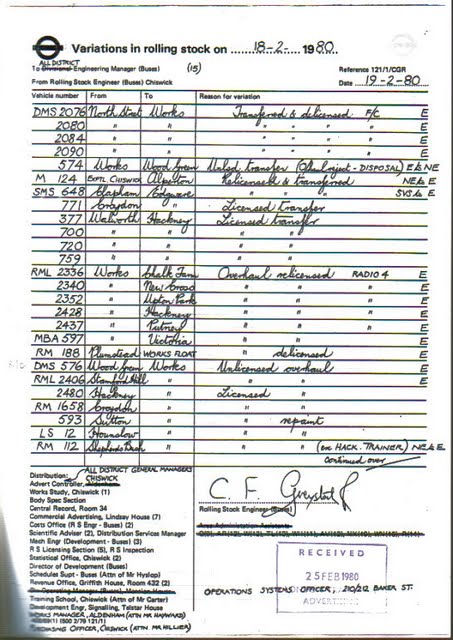 Variations in rolling stock on 18-2- 1980.
ALL DISTRICT
To Divisional Engineering Manager (Buses) (15)
Reference 121/1/CGR
From Rolling Stock Engineer (Buses) Chiswick
Date 19-2-80
Vehicle number From To Reason for variation
DMS 2076 North Street Works Transferred & delicensed F/C E
2080 " " " " " " E
2084 " " " " " " E
2090 " " " " " " E
574 Works Wood Green Unlcd transfer (O'haul reject - DISPOSAL) E & NE
M 124 EXPTL CHISWICK Alperton Relicensed & transferred NE & E
SMS 648 Clapham Edgware " " SVS & E
771 Croydon " Licensed transfer
377 Walworth Hackney Licensed transfer
700 " " " "
720 " " " "
759 " " " "
RML 2336 Works Chalk Farm Overhaul relicensed RADIO 4 E
2340 " New Cross " " " E
2352 " Upton Park " " " E
2428 " Hackney " " " E
2437 " Putney " " " E
MBA 597 " Victoria " " E
RM 188 Plumstead WORKS FLOAT " delicensed E
DMS 576 Wood Green Works Unlicensed overhaul E
RML 2406 Stamford Hill " " " E
2480 Hackney " Licensed "
RM 1658 Croydon " " "
593 Sutton " " repaint
LS 12 Hounslow " " "
RM 112 Shepherds Bush " " " (ex HACK. TRAINER) NE & E
continued over
Distribution: ALL DISTRICT GENERAL MANAGERS
CHISWICK
Advert Controller, Aldenham
Works Study, Chiswick (1)
Body Spec Section
Central Record, Room 34
Commercial Advertising, Lindsay House (7)
Costs Office (R S Engr - Buses) (2)
Scientific Adviser (2), Distribution Services Manager
Mech Engr (Development - Buses) (3)
R S Licensing Section (5), R S Inspection
Statistical Office, Chiswick (2)
Director of Development (Buses)
Schedules Supt - Buses (Attn of Mr Hyslop)
Revenue Office, Griffith House, Room 432 (2)
Training School, Chiswick (Attn of Mr Carter)
Development Engr, Signalling, Telstar House
WORKS MANAGER, ALDENHAM (ATTN MR HAYWARD)
PURCHASING OFFICER, CHISWICK (ATTN MR HILLIER)
C. F.
Rolling Stock Engineer (Buses)
Area Administration Assistants
RECEIVED
25 FEB 1980
OPERATIONS SYSTEMS OFFICER, 210/212 BAKER ST.